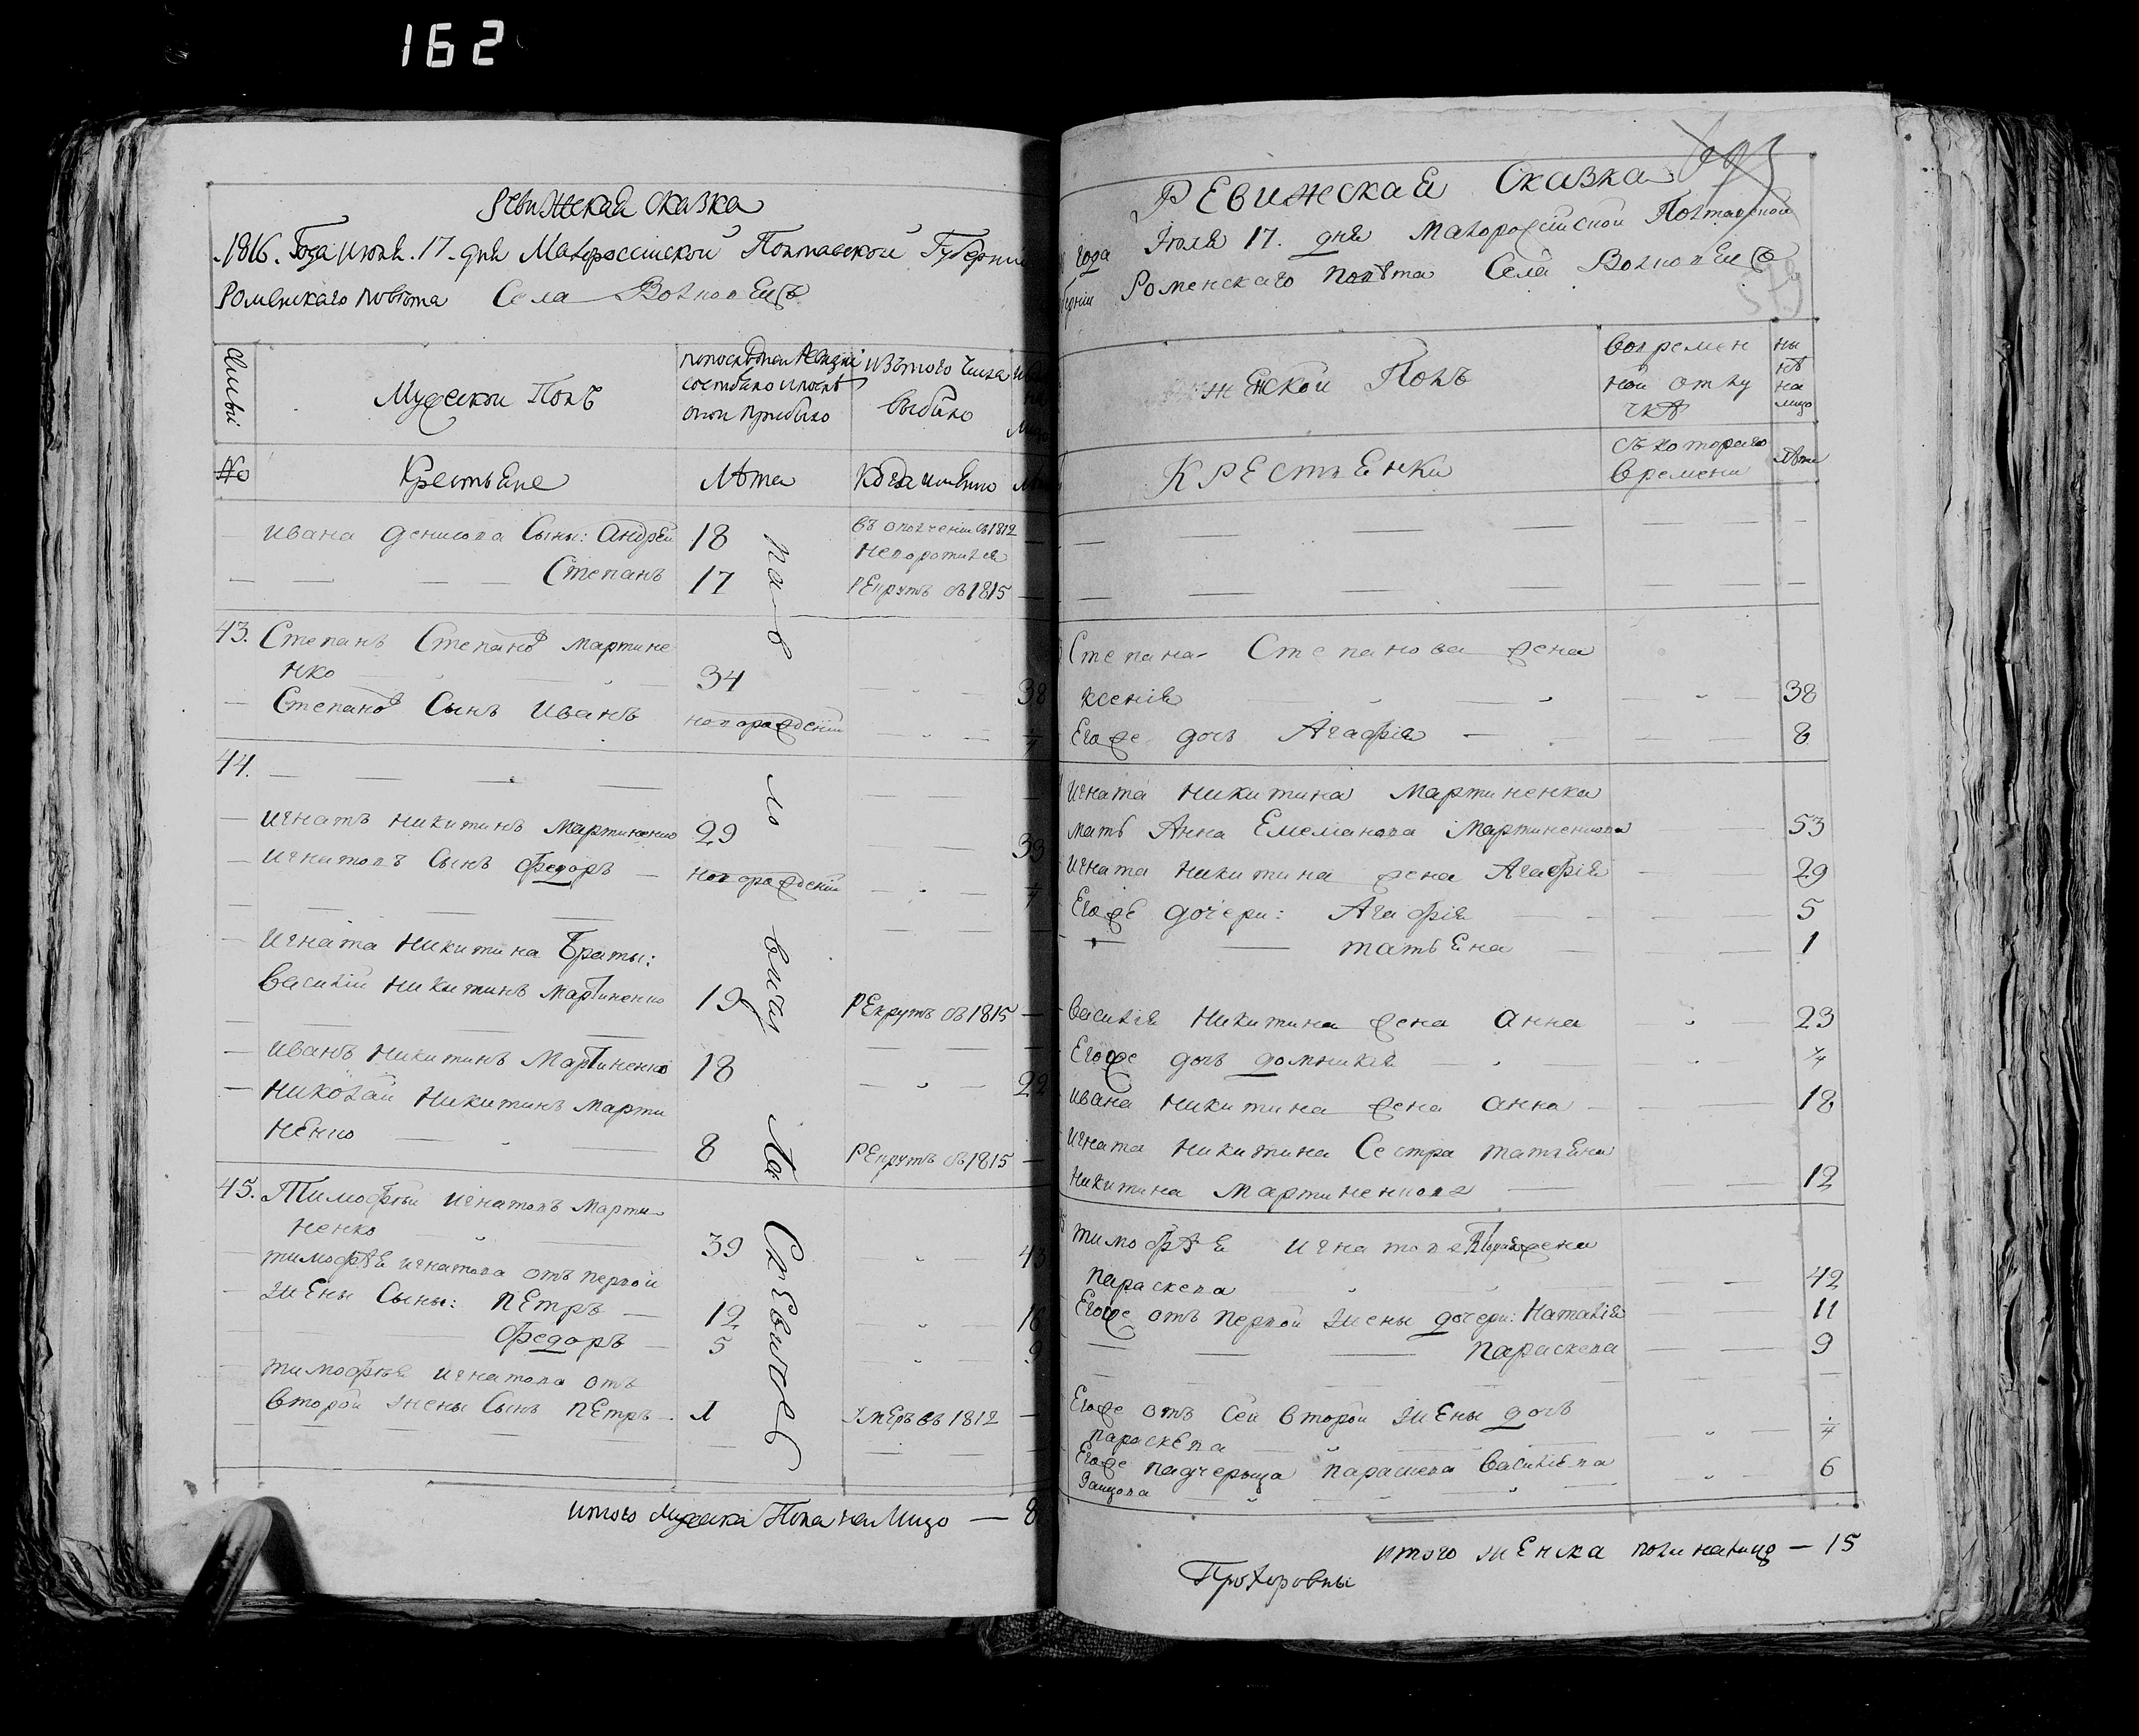 162
Ревижская сказка
1816. Года июля. 17. дня Малороссійской Полтавской Губерніи
Роменскаго повѣта Села
Мужескои Полъ
изъ того числа
выбыло
№
Крестьяне
Лѣта
Когда имянно
Ивана Денисова Сыны: Андрей 18 въ ополченіи въ 1812
Степанъ 17 Рекрутъ въ 1815
43. Степанъ Степановъ Мартине
нко 34 38
Степановъ Сынъ Иванъ новорожденій
44.
Игнатъ Никитинъ Мартиненко 29 33
Игнатовъ Сынъ Федоръ новорожденій
Игната Никитина Браты:
Василій Никитинъ Мартиненко 19 Рекрутъ въ 1815
Иванъ Никитинъ Мартиненко 18 22
Николай Никитинъ Марти
ненко 8 Рекрутъ въ 1815
45. Тимофѣй Игнатовъ Марти
ненко 39 43
Тимофѣя Игнатова отъ первой
жены Сыны: Петръ 12 16
Федоръ 5 9
Тимофѣя Игнатова отъ
второй жены Сынъ Петръ 1 умеръ въ 1812
итого мужеска Пола на Лицо — 8
Ревижская Сказка
года Іюля 17. дня Малоросійской Полтавской
Роменскаго повѣта Села
Женской Полъ
во времен
ной отлу
чкѣ
ны
нѣ
на
лицо
Крестьенки
съ котораго
времени
лѣта
Степана Степанова жена
Ксенія 38
Егоже дочь Агафія 8
Игната Никитина Мартиненка
мать Анна Емелianова Мартиненкова 53
Игната Никитина жена Агафія 29
Егоже дочери: Агафія 5
татьена 1
Василія Никитина жена Анна 23
Егоже дочь Домникія
Ивана Никитина жена Анна 18
Игната Никитина Сестра татьена
Никитина Мартиненкова 12
Тимофѣя Игнатова жена
Параскева 42
Егоже отъ первой жены дочери: Наталія 11
Параскева 9
Егоже отъ сей второй жены дочь
Параскева
Егоже падчерыца Параскева Василіева 6
итого женска пола налицо — 15
Прохоровны